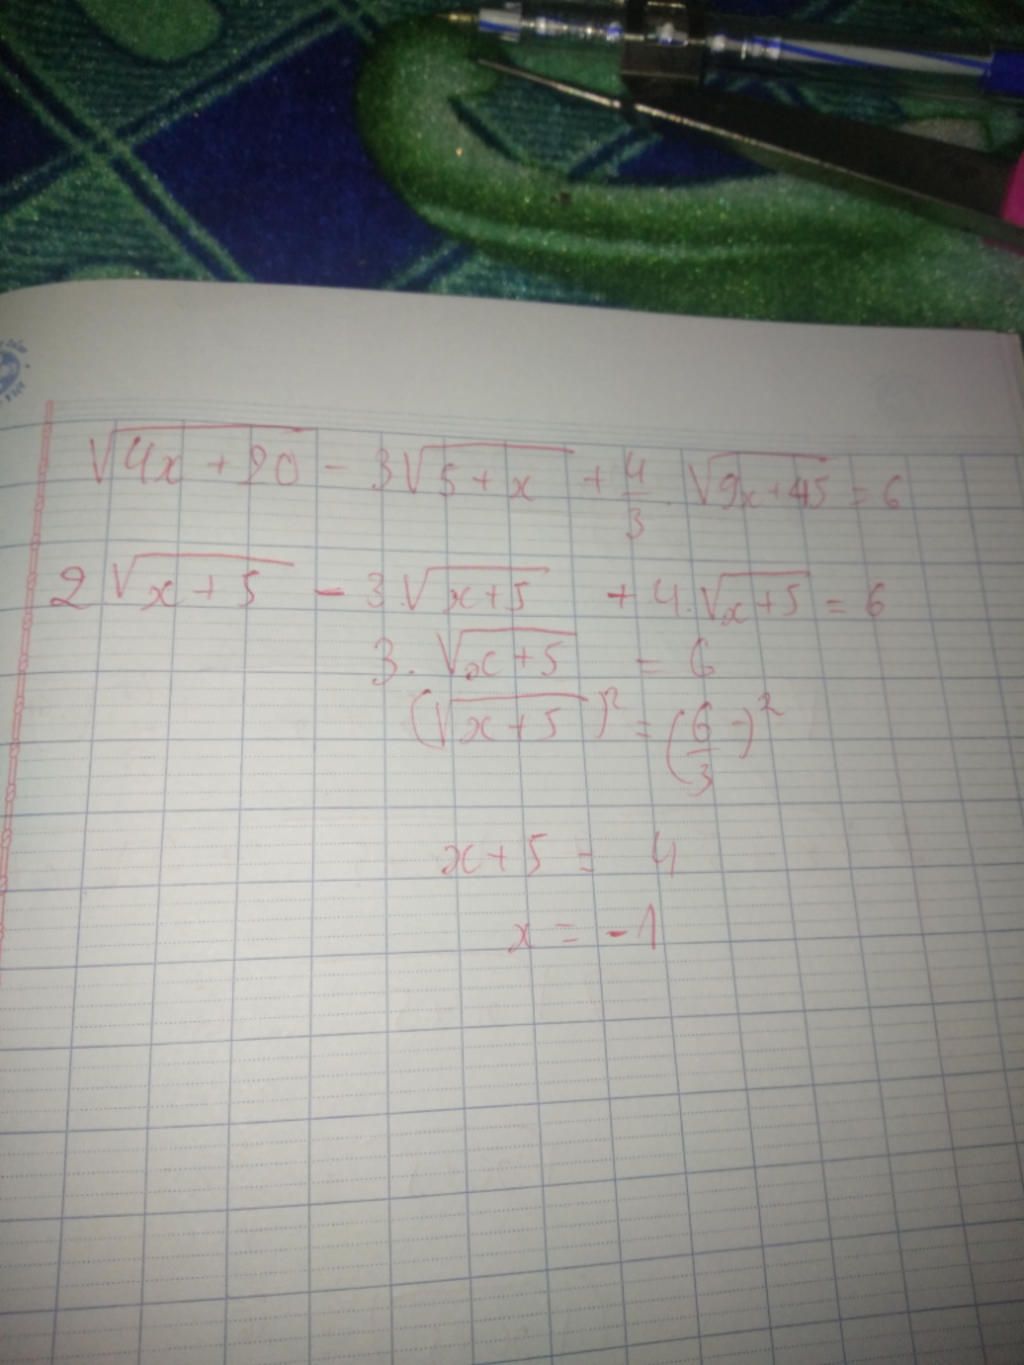 √(4x + 20) - 3√(5 + x) + 4/3 . √(9x + 45) = 6
2√(x + 5) - 3.√(x + 5) + 4.√(x + 5) = 6
3. √(x + 5) = 6
(√(x + 5))² = (6/3)²
x + 5 = 4
x = -1